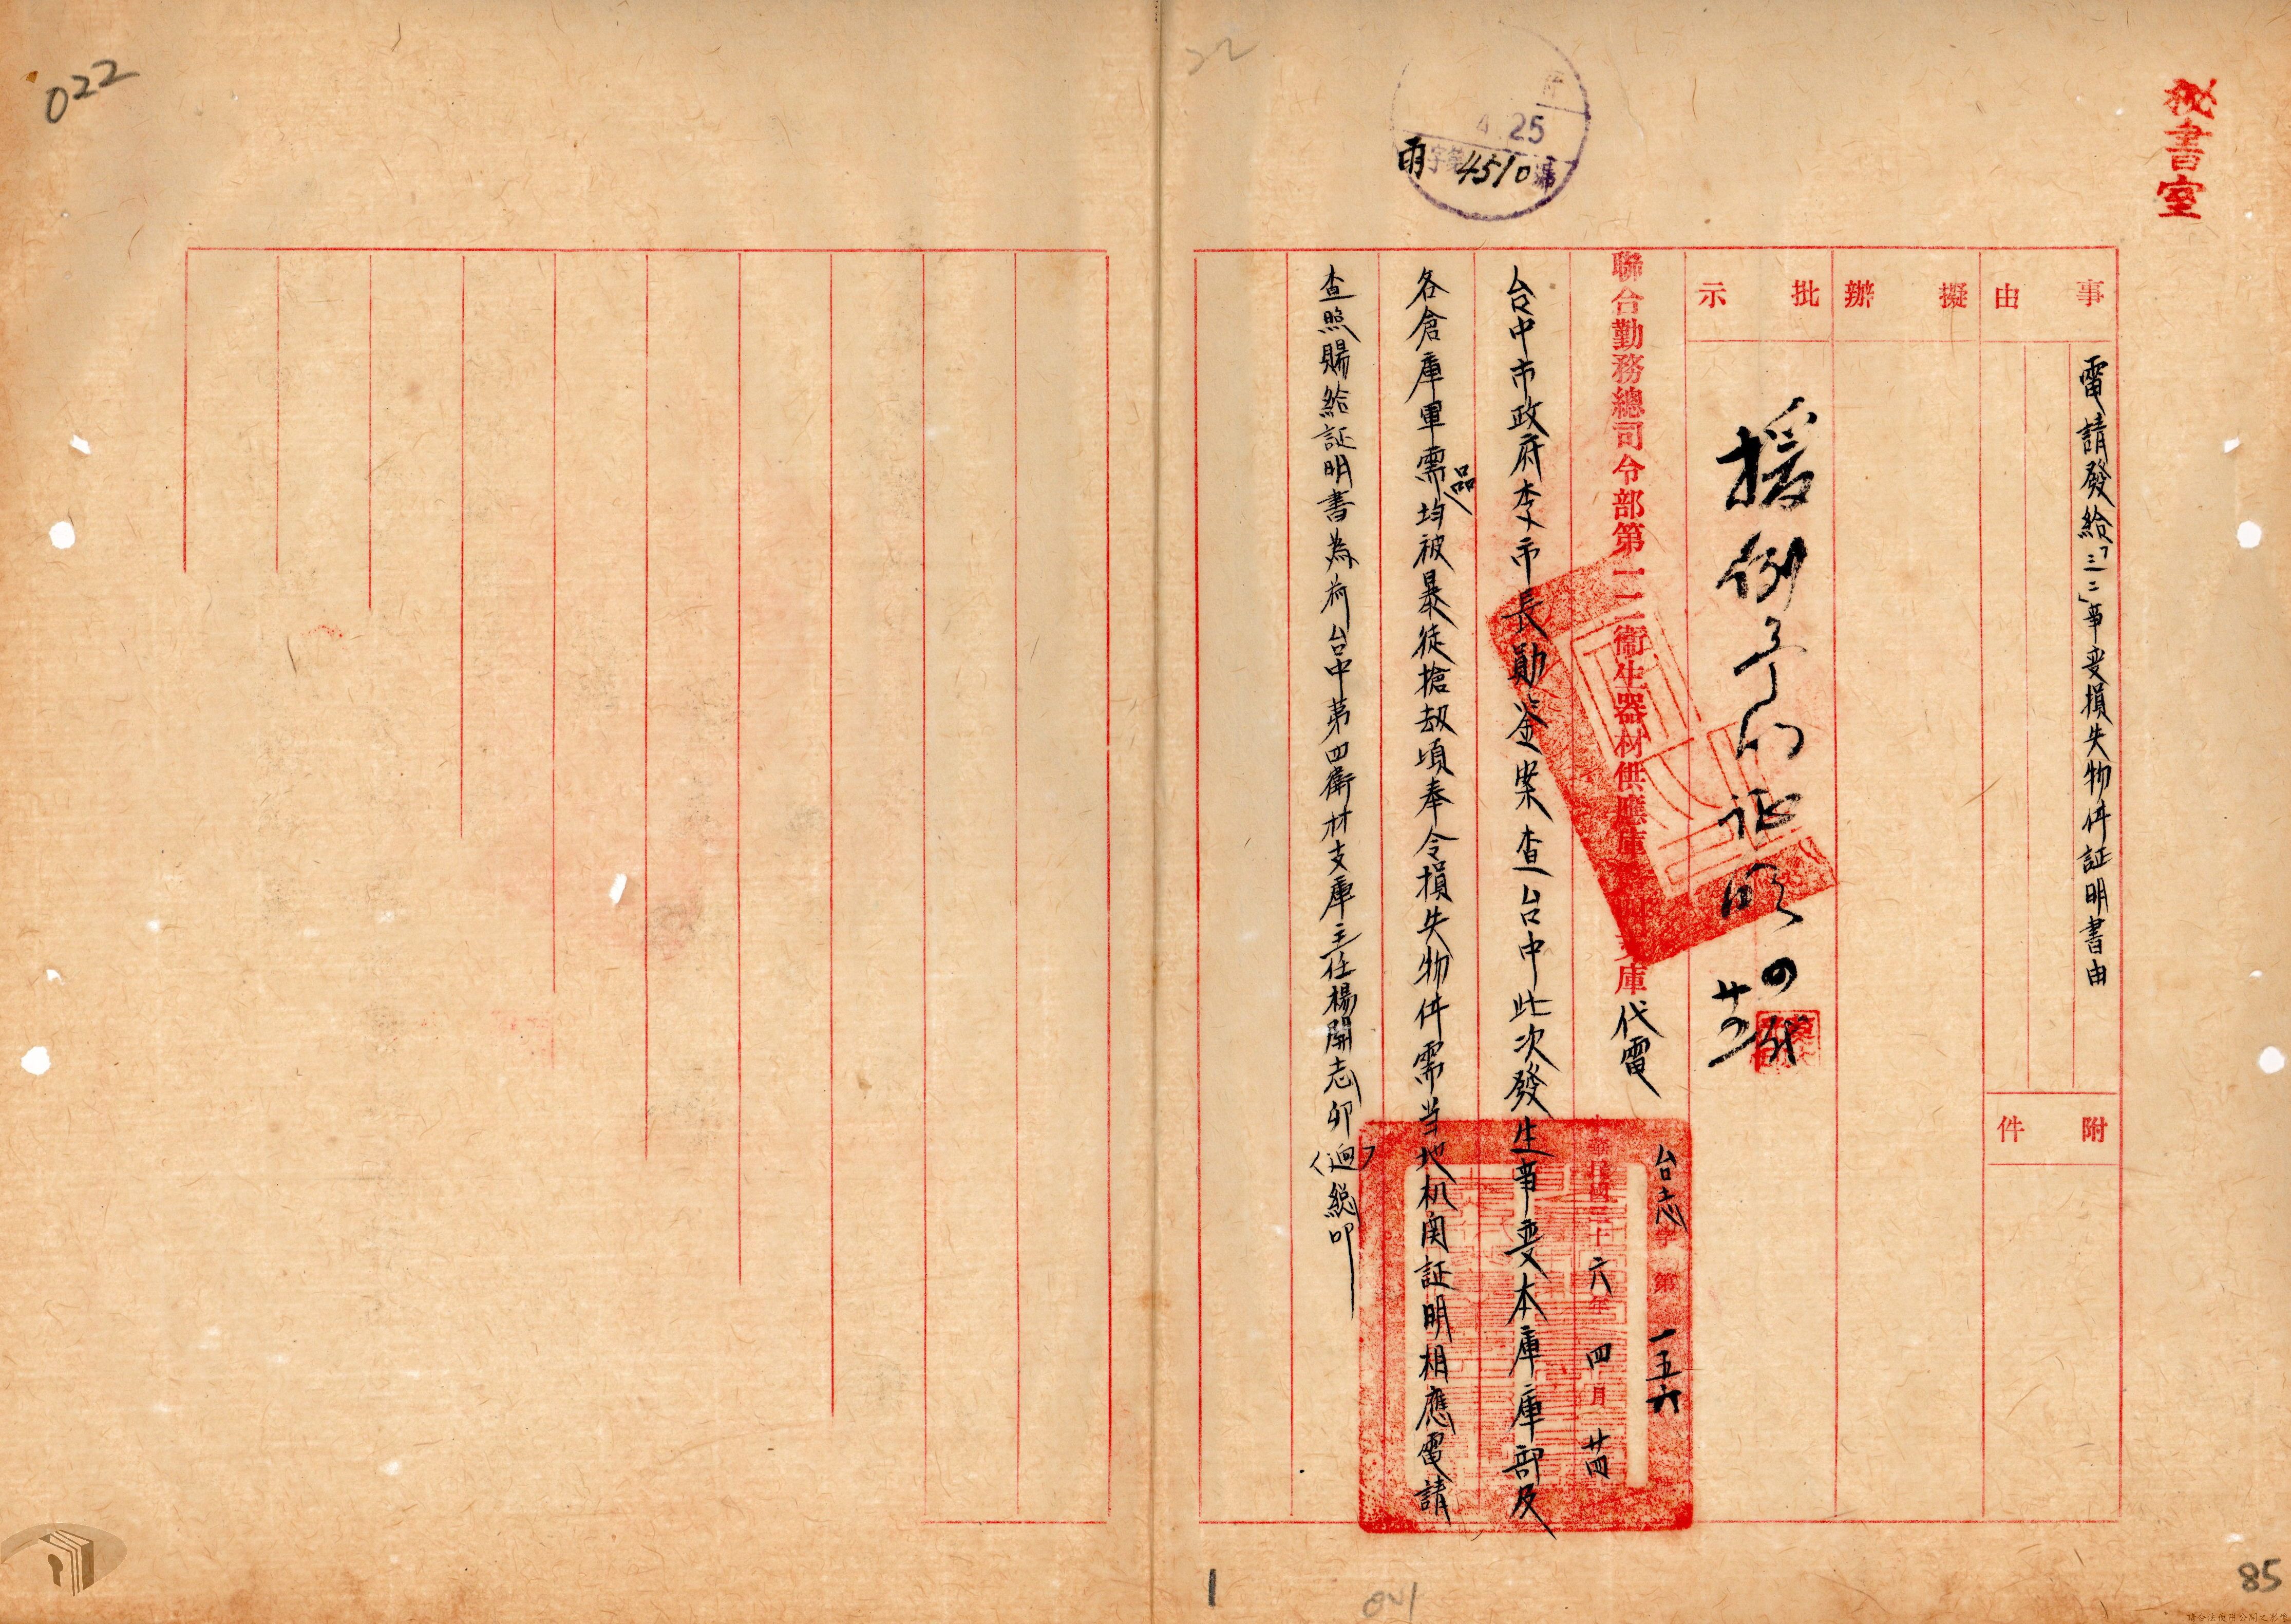 022
22
秘書室
4.25
雨字第4510號
事由
電請發給「三二」事变損失物件証明書由
附件
擬辦
批示
援例予以证明 四 廿四
聯合勤務總司令部第一二衛生器材供應庫 支庫代電
台志字第一五六
中華民國三十六年四月廿四
台中市政府李市長勛鉴案查台中此次發生事变本庫庫部及
各倉庫軍需品均被暴徒搶劫頃奉令損失物件需当地机関証明相應電請
查照賜給証明書為荷台中第四衛材支庫主任楊開志卯(迴)總叩
1
041
85